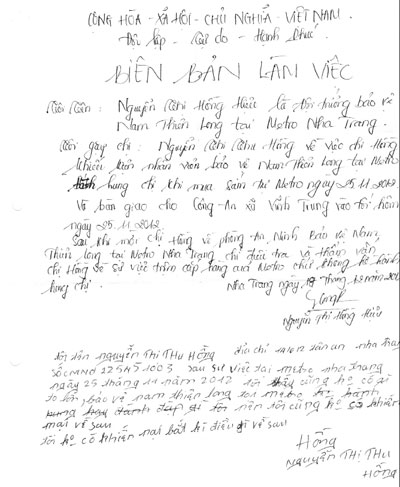 CỘNG HÒA - XÃ HỘI - CHỦ NGHĨA - VIỆT NAM.
Độc lập - Tự do - Hạnh Phúc.
BIÊN BẢN LÀM VIỆC
Tôi tên: Nguyễn Thị Hồng Hiếu là đội trưởng bảo vệ
Nam Thiên Long tại Metro Nha Trang.
Nguyễn Thị Thu Hồng về việc chị Hồng
nhân viên bảo vệ Nam Thiên Long tại Metro
hung chị khi mua sắm tại Metro ngày 25.11.2012
Và bàn giao cho Công-An xã Vĩnh Trung vào tối hôm
ngày 25.11.2012
Sau khi mời chị Hồng về phòng An Ninh Bảo vệ Nam
Thiên Long tại Metro Nha Trang chỉ điều tra và thẩm vấn
chị Hồng về sự việc trộm cắp hàng của Metro chứ không hề hành
hung chị.
Nha Trang ngày Tháng 12 năm 2012
Nguyễn Thị Hồng Hiếu
tôi tên nguyễn Thị THU HỒNG địa chỉ tân an nha trang
số CMND sau sự việc tại metro nha trang
ngày 25 tháng 11 năm 2012 tôi cũng
bảo vệ nam thiên long tại metro
nên tôi cũng khiếu
nại về sau
tôi ko có khiếu nại bất kì điều gì về sau
Hồng
NGUYỄN THỊ THU
HỒNG